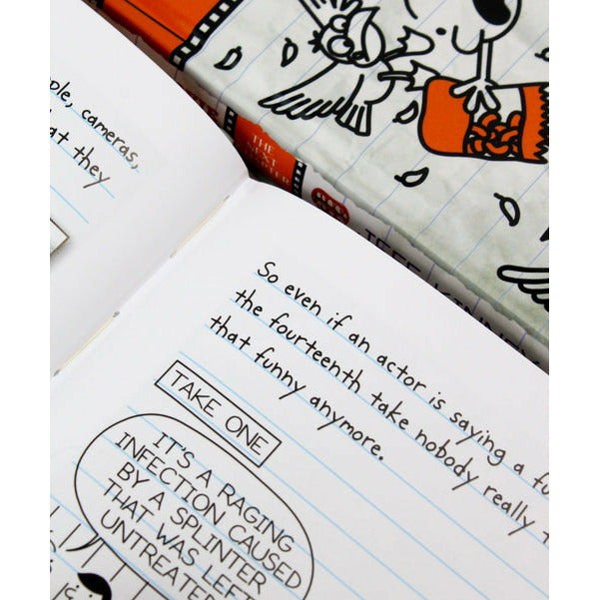 ple, cameras,
at they
So even if an actor is saying a
the fourteenth take nobody really
that funny anymore.
TAKE ONE
IT'S A RAGING
INFECTION CAUSED
BY A SPLINTER
THAT WAS LEFT
UNTREATED
THE
NEXT